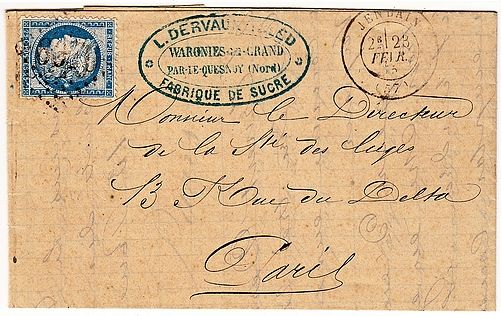 L. DERVAUX-LEU
WARGNIES-LE-GRAND
PAR-LE-QUESNOY (Nord)
FABRIQUE DE SUCRE
JENLAIN
2E 23
FEVR.
75
(57)
Monsieur le Directeur
de la Sté des
13 Rue du Delta
Paris